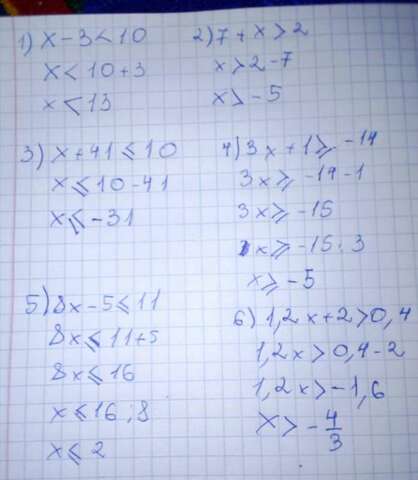 1) x-3<10
x<10+3
x<13
2) 7+x>2
x>2-7
x>-5
3) x+41≤10
x≤10-41
x≤-31
4) 3x+1≥-14
3x≥-14-1
3x≥-15
x≥-15:3
x≥-5
5) 8x-5≤11
8x≤11+5
8x≤16
x≤16:8
x≤2
6) 1,2x+2>0,4
1,2x>0,4-2
1,2x>-1,6
x>-4/3